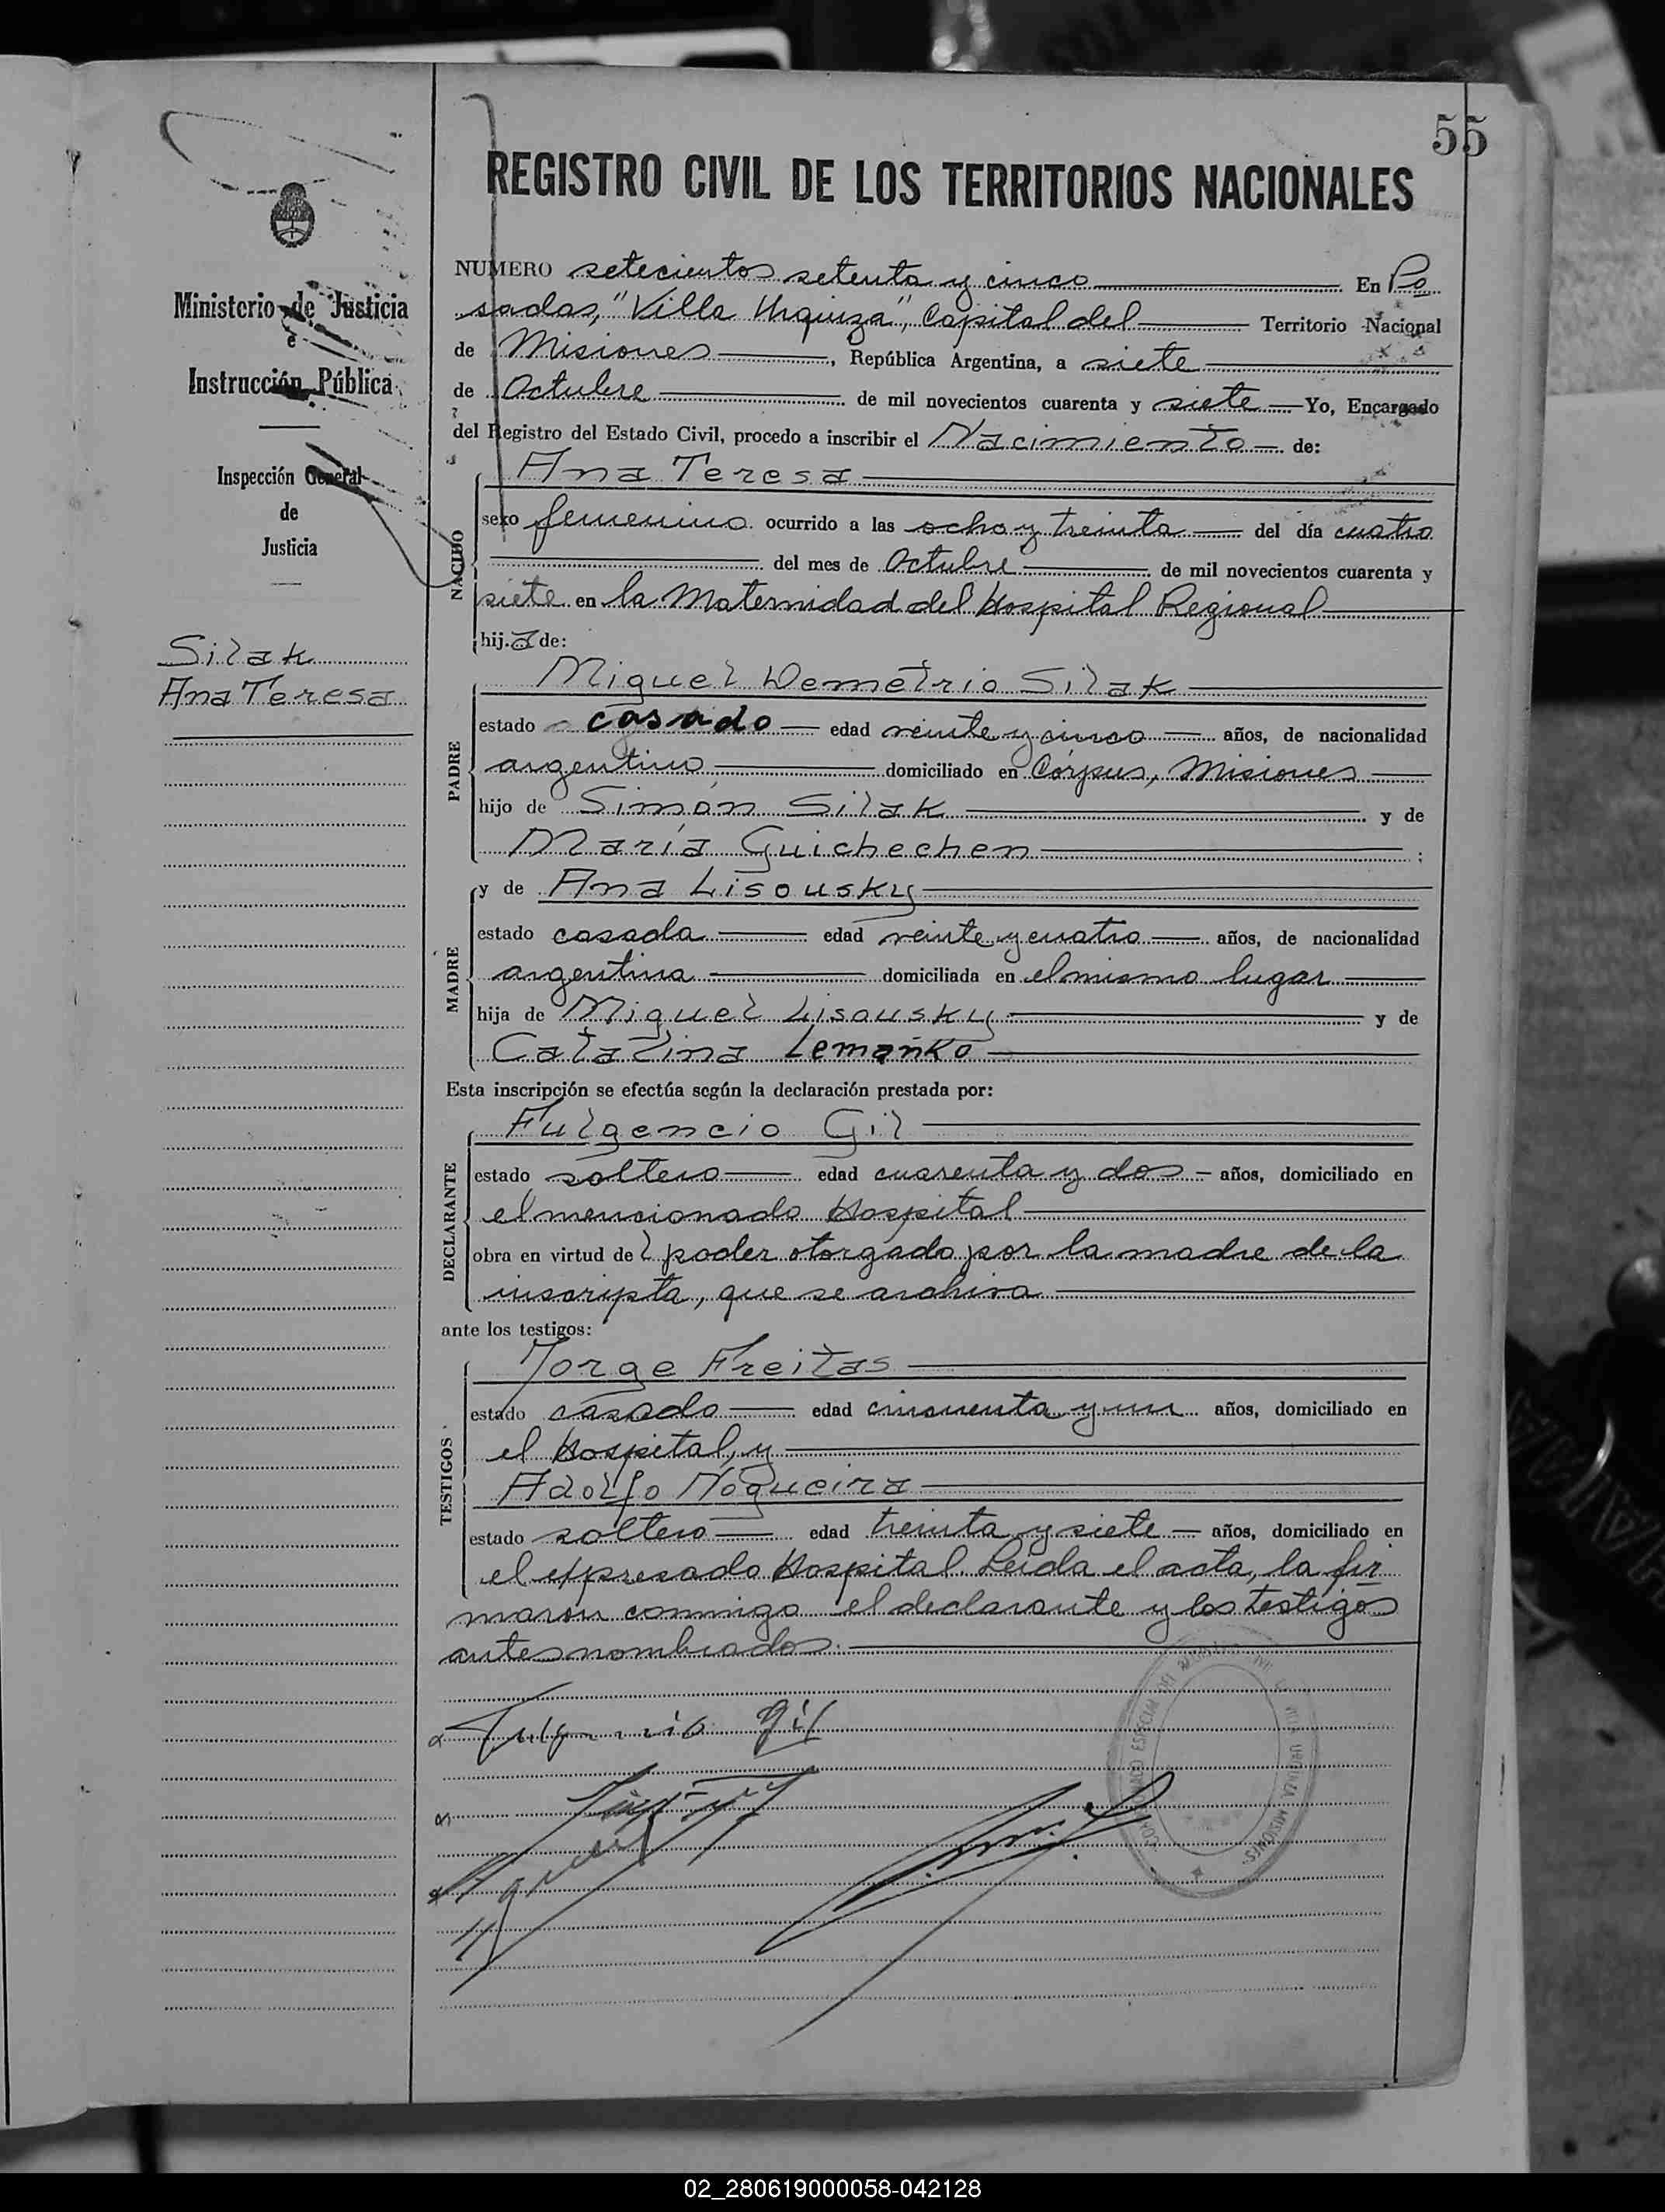 55
REGISTRO CIVIL DE LOS TERRITORIOS NACIONALES
Ministerio de Justicia
e
Instrucción Pública
Inspección General
de
Justicia
Silak
Ana Teresa
NUMERO setecientos setenta y cinco En Po
sadas, "Villa Urquiza", Capital del Territorio Nacional
de Misiones, República Argentina, a siete
de Octubre de mil novecientos cuarenta y siete Yo, Encargado
del Registro del Estado Civil, procedo a inscribir el Nacimiento de:
NACIDO
Ana Teresa
sexo femenino ocurrido a las ocho y treinta del día cuatro
del mes de Octubre de mil novecientos cuarenta y
siete en la Maternidad del Hospital Regional
hija de:
PADRE
Miguel Demetrio Silak
estado casado edad veinte y cinco años, de nacionalidad
argentino domiciliado en Córpus, Misiones
hijo de Simón Silak y de
María Guichechen ;
MADRE
y de Ana Lisousky
estado casada edad veinte y cuatro años, de nacionalidad
argentina domiciliada en el mismo lugar
hija de Miguel Lisousky y de
Catalina Lemañko
Esta inscripción se efectúa según la declaración prestada por:
DECLARANTE
Fulgencio Gil
estado soltero edad cuarenta y dos años, domiciliado en
el mencionado Hospital
obra en virtud del poder otorgado por la madre de la
inscripta, que se archiva
ante los testigos:
TESTIGOS
Jorge Freitas
estado casado edad cincuenta y un años, domiciliado en
el Hospital, y
Adolfo Nogueira
estado soltero edad treinta y siete años, domiciliado en
el expresado Hospital. Leída el acta, la fir
maron conmigo el declarante y los testigos
antes nombrados.
Fulgencio Gil
02_280619000058-042128